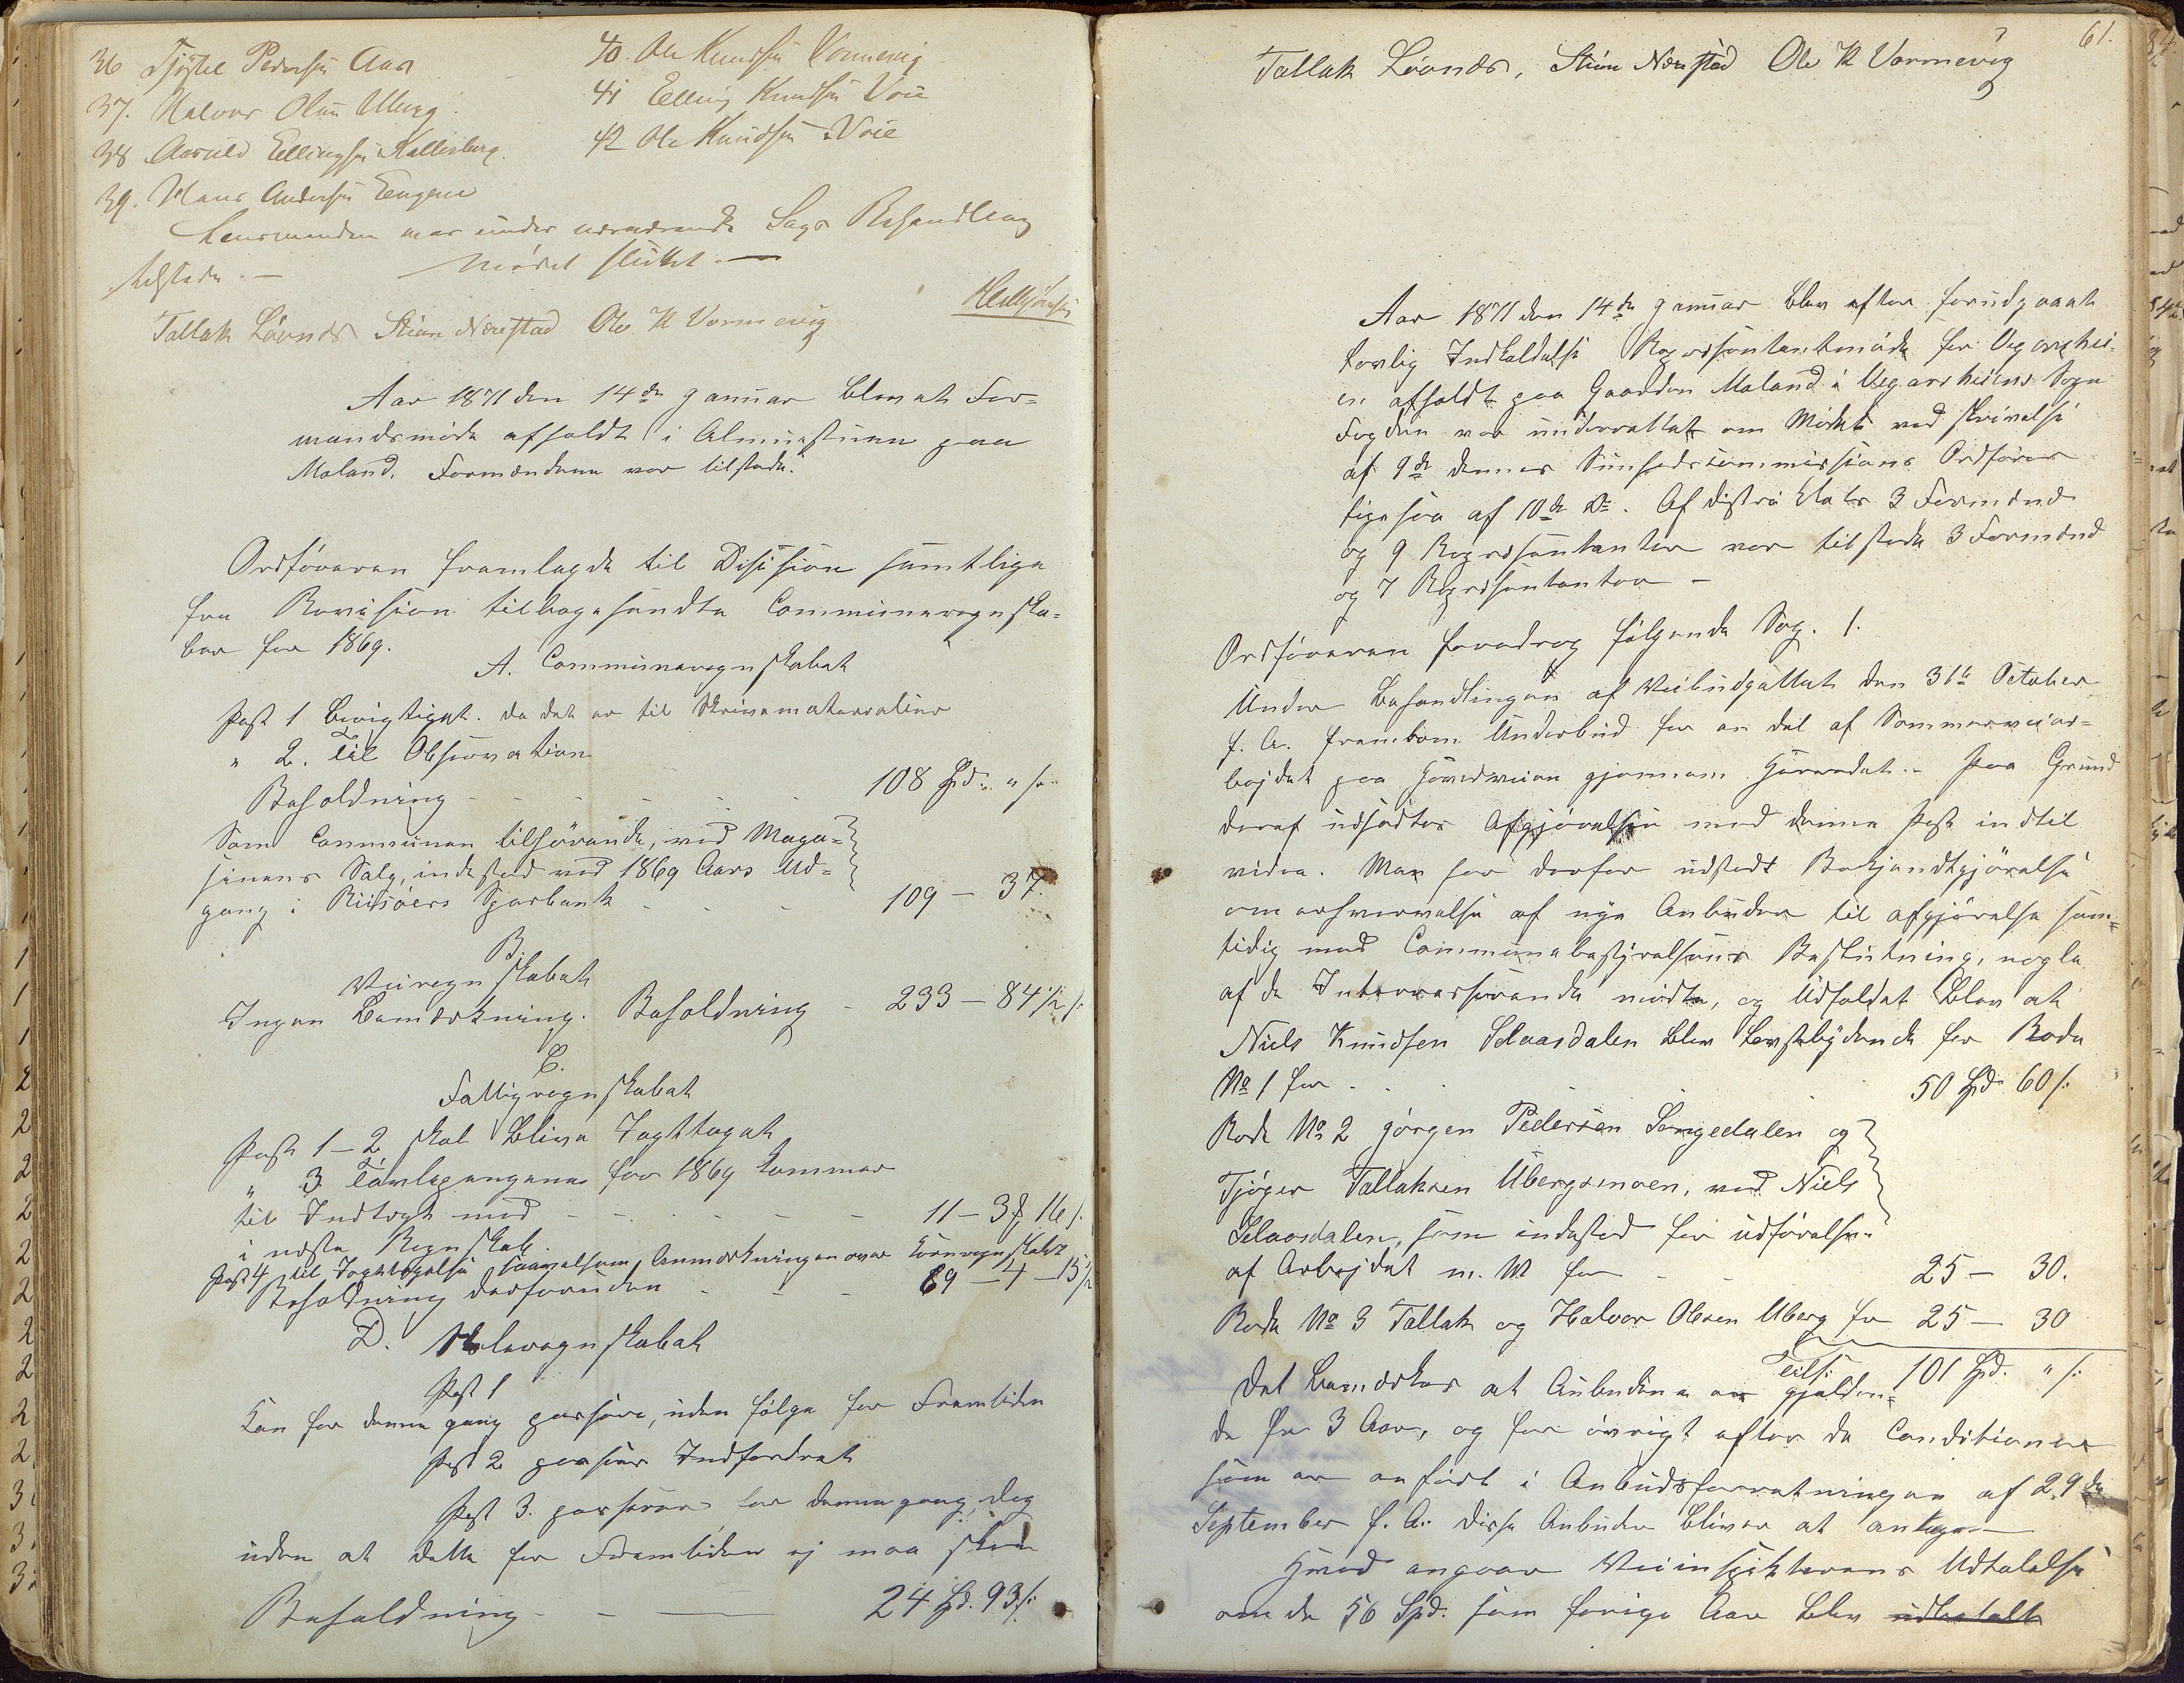 36 Tjøstel Pedersen Aas
37. Halvor Olsen Uberg.
38 Aasuld Ellingsen Kallesberg.
39. Hans Andersen Eengene
40. Ole Knudsen Vormevig
41 Elling Knudsen Voie
42 Ole Knudsen Voie
Lensmanden var under nærværende Sags Behandling
tilstede. — Mødet sluttet. —
Tallak Løvnæs Stian Næsstad Ole K Vormevig
Aar 1871 den 14de Januar blev et For=
mandsmøde afholdt i Almuestuen paa
Moland. Formændene var tilstede.
Ordføreren fremlagde til Disision samtlige
fra Revision tilbagesendte Communeregnska=
ber for 1869.
A. Communeregnskabet
Post 1 berigtiget. da det er til Skrivematerialier
" 2. Til Observation
Beholdning - - - - - 108 Spd. " s.
Som Communen tilhørende, ved Maga=
sinens Salg, indestod ved 1869 Aars Ud=
gang i Riisöers Sparbank - - - 109 — 37.
B.
Veiregnskabet
Ingen Bemærkning. Beholdning - 233 — 84½ s.
C.
Fattigregnskabet
Post 1–2 skal blive Iagttaget
" 3. Tavlepengene for 1869 kommer
til Indtægt med - - - - - 11 – 3 16 s.
i næste Regnskab.
Post 4 til Iagttagelse saavelsom Anmærkningen over Kornregnskabet
Beholdning desforuden - - - 69 – 4 – 15½
D. Skoleregnskabet
Post 1
kan for denne gang passere, uden følge for Fremtiden
Post 2 passeres Indfordret
Post 3. passeres for denne gang, dog
uden at dette for Fremtiden ej maa skee
Beholdning - - — 24 Spd. 93 s.
61.
Tallak Løvnæs, Stian Næsstad Ole K Vormevig
Aar 1871 den 14de Januar blev efter forudgaaet
lovlig Indkaldelse Repræsentantmøde for Vegarshei=
en afholdt paa Gaarden Moland i Vegarsheiens Sogn
Fogden var underrettet om Mødet ved skrivelse
af 9de dennes Sunhedscommissions Ordfører
ligesaa af 10de do. Af distriktets 3 Formænd
og 9 Repræsentanter var tilstede 3 Formænd
og 7 Repræsentanter —
Ordføreren foredrog følgende Sag. 1.
Under Behandlingen af Veibudgættet den 31te October
f. A. fremkom Underbud for en del af Sommerveiar=
bejdet paa Hovedveien gjennem Herredet. - Paa Grund
deraf udsattes Afgjørelsen med denne Post indtil
videre. Man har derfor udstedt Bekjendtgjørelse
om erhvervelse af nye Anbuder til afgjørelse sam=
tidig med Communebestyrelsens Beslutning, nogle
af de Interesserende mødte, og Udfaldet blev at
Niels Knudsen Selaasdalen blev lavestbydende for Rode
No 1 for - - - 50 Spd 60 s.
Rode No 2 Jørgen Pedersen Songedalen og
Tjøger Tallaksen Ubergsmoen, ved Niels
Selaasdalen, som indestod for udførelsen
af Arbejdet m. M for - - 25 — 30.
Rode No 3 Tallak og Halvor Olsen Uberg for 25 — 30
Tils: 101 Spd. " s.
Det bemærkes at Anbudene er gjelden=
de for 3 Aar, og for øvrigt efter de Conditioner
som er anført i Anbudsforretningen af 29de
September f. A. disse Anbuder bliver at antage —
Hvad angaar Veiinspekteurens Udtalelse
om de 56 Spd. som forige Aar blev udbetalt